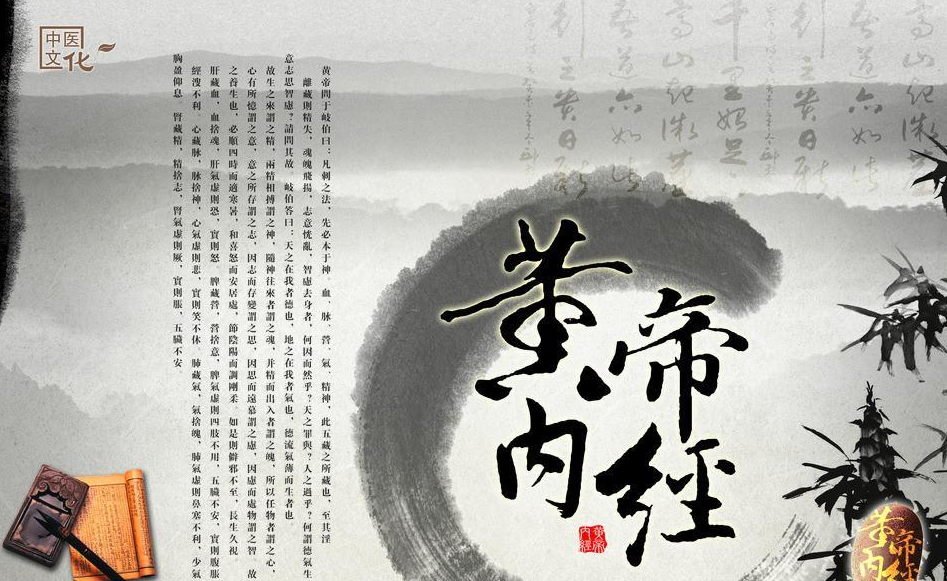 中医
文化
黄帝問于岐伯曰：凡刺之法，先必本于神。血、脉、營、氣、精神，此五藏之所藏也，至其淫
離藏則精失，魂魄飛揚，志意恍亂，智慮去身者，何因而然乎？天之罪與？人之過乎？何謂德氣生
意志思智慮？請問其故。岐伯答曰：天之在我者德也，地之在我者氣也，德流氣薄而生者也
故生之來謂之精，兩精相搏謂之神，隨神往來者謂之魂，并精而出入者謂之魄，所以任物者謂之心，
心有所憶謂之意，意之所存謂之志，因志而存變謂之思，因思而遠慕謂之慮，因慮而處物謂之智 故
之養生也，必順四時而適寒暑，和喜怒而安居處，節陰陽而調剛柔 如是則僻邪不至，長生久視
肝藏血，血捨魂，肝氣虚則恐，實則怒 脾藏營，營捨意，脾氣虚則四肢不用，五臟不安，實則腹脹
經溲不利 心藏脉，脉捨神，心氣虚則悲，實則笑不休 肺藏氣，氣捨魄，肺氣虚則鼻塞不利，少氣
胸盈仰息 腎藏精，精捨志，腎氣虚則厥，實則脹，五臟不安
黄帝
内經
黄帝
内經
黄帝
内經